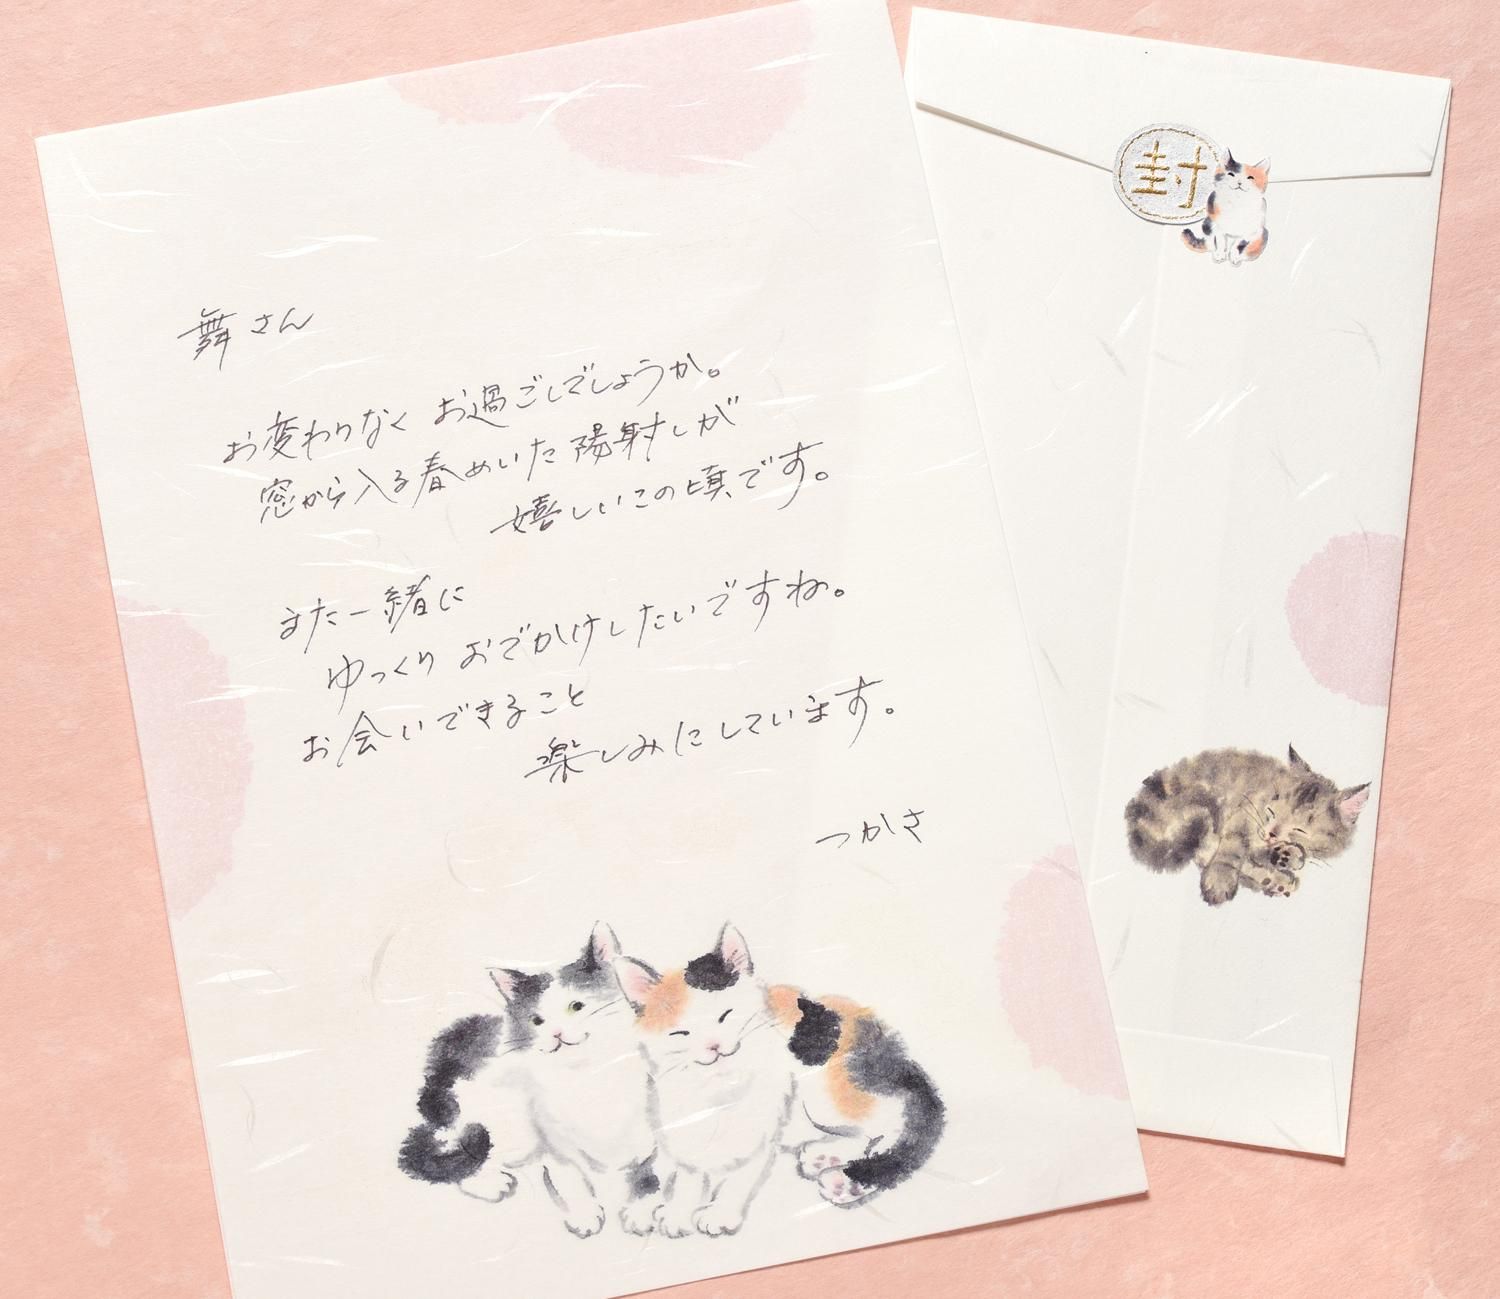 舞さん
お変わりなく お過ごしでしょうか。
窓から入る春めいた陽射しが
嬉しいこの頃です。
また一緒に
ゆっくり おでかけしたいですね。
お会いできること
楽しみにしています。
つかさ
封